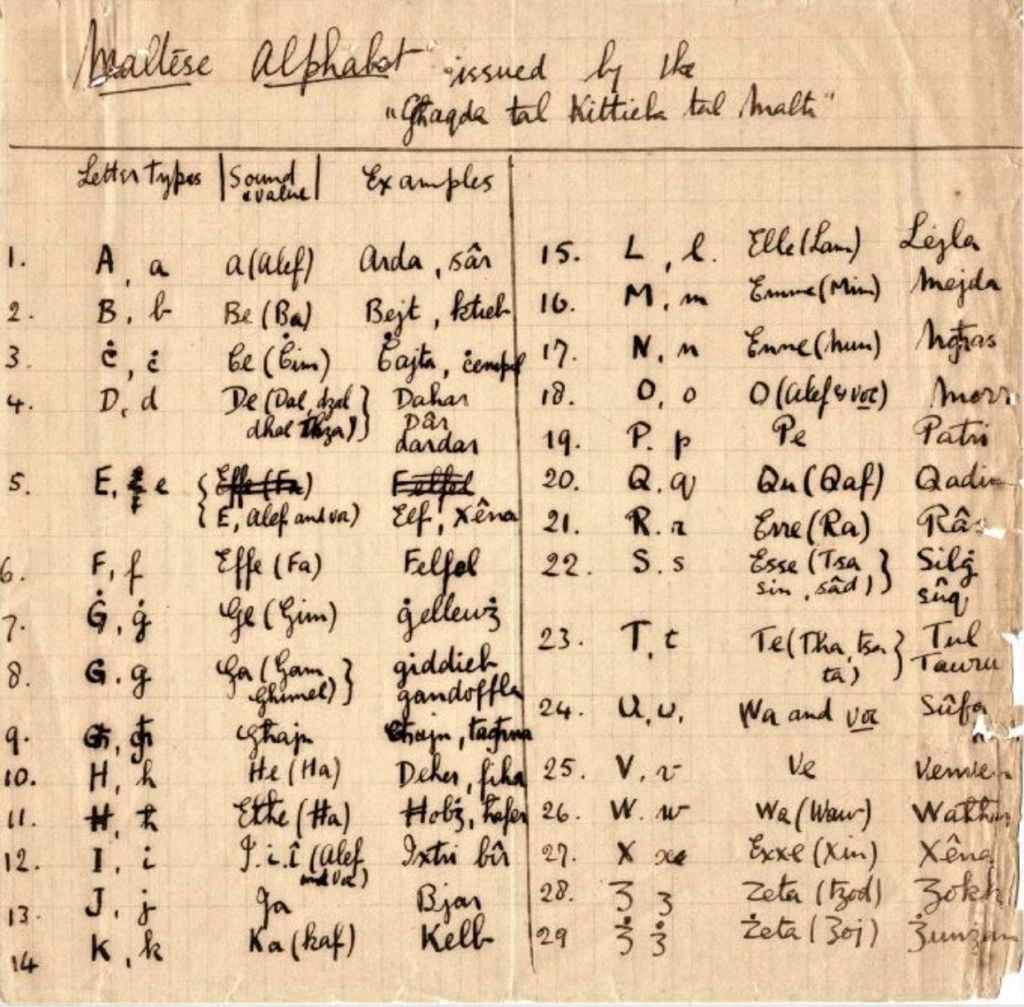 Maltese Alphabet issued by the
"Għaqda tal Kittieba tal Malti"
Letter types | Sound value | Examples
1. A, a a (Alef) Arda, sâr
2. B, b Be (Ba) Bejt, ktieb
3. Ċ, ċ Ċe (Ċim) Ċajta,
4. D, d De (Dal, dzal Dahar
dhal) Dâr
dardar
5. E, e Effe (Fa) Felfel
E, Alef and voc) Elf, Xêna
6. F, f Effe (Fa) Felfel
7. Ġ, ġ Ġe (Ġim) ġellewż
8. G, g Ga (Gam giddieb
Ghimel) gandoffla
9. Għ, għ Għajn Għajn,
10. H, h He (Ha) Deher, fiha
11. Ħ, ħ Ethe (Ħa) Ħobż, ħafer
12. I, i I. i. î (Alef Ixtri bîr
and voc)
13. J, j Ja Bjar
14 K, k Ka (kaf) Kelb
15. L, l. Elle (Lam) Lejla
16. M, m Emme (Mim) Mejda
17. N, n Enne (Nun) Ngħas
18. O, o O (Alef & voc) Morr
19. P. p Pe Patri
20. Q. q Qu (Qaf)
21. R. r Erre (Ra) Râs
22. S. s Esse (Tsa Silġ
sin, sâd) sûq
23. T, t Te (Tha, tsa Tul
ta)
24. U, u, Wa and voc Sûfa
25. V, v Ve
26. W. w Wa (Waw)
27. X x Exxe (Xin) Xêna
28. Ʒ ʒ Zeta (tzod)
29 Ʒ̇ ʒ̇ Żeta (Ʒoj)